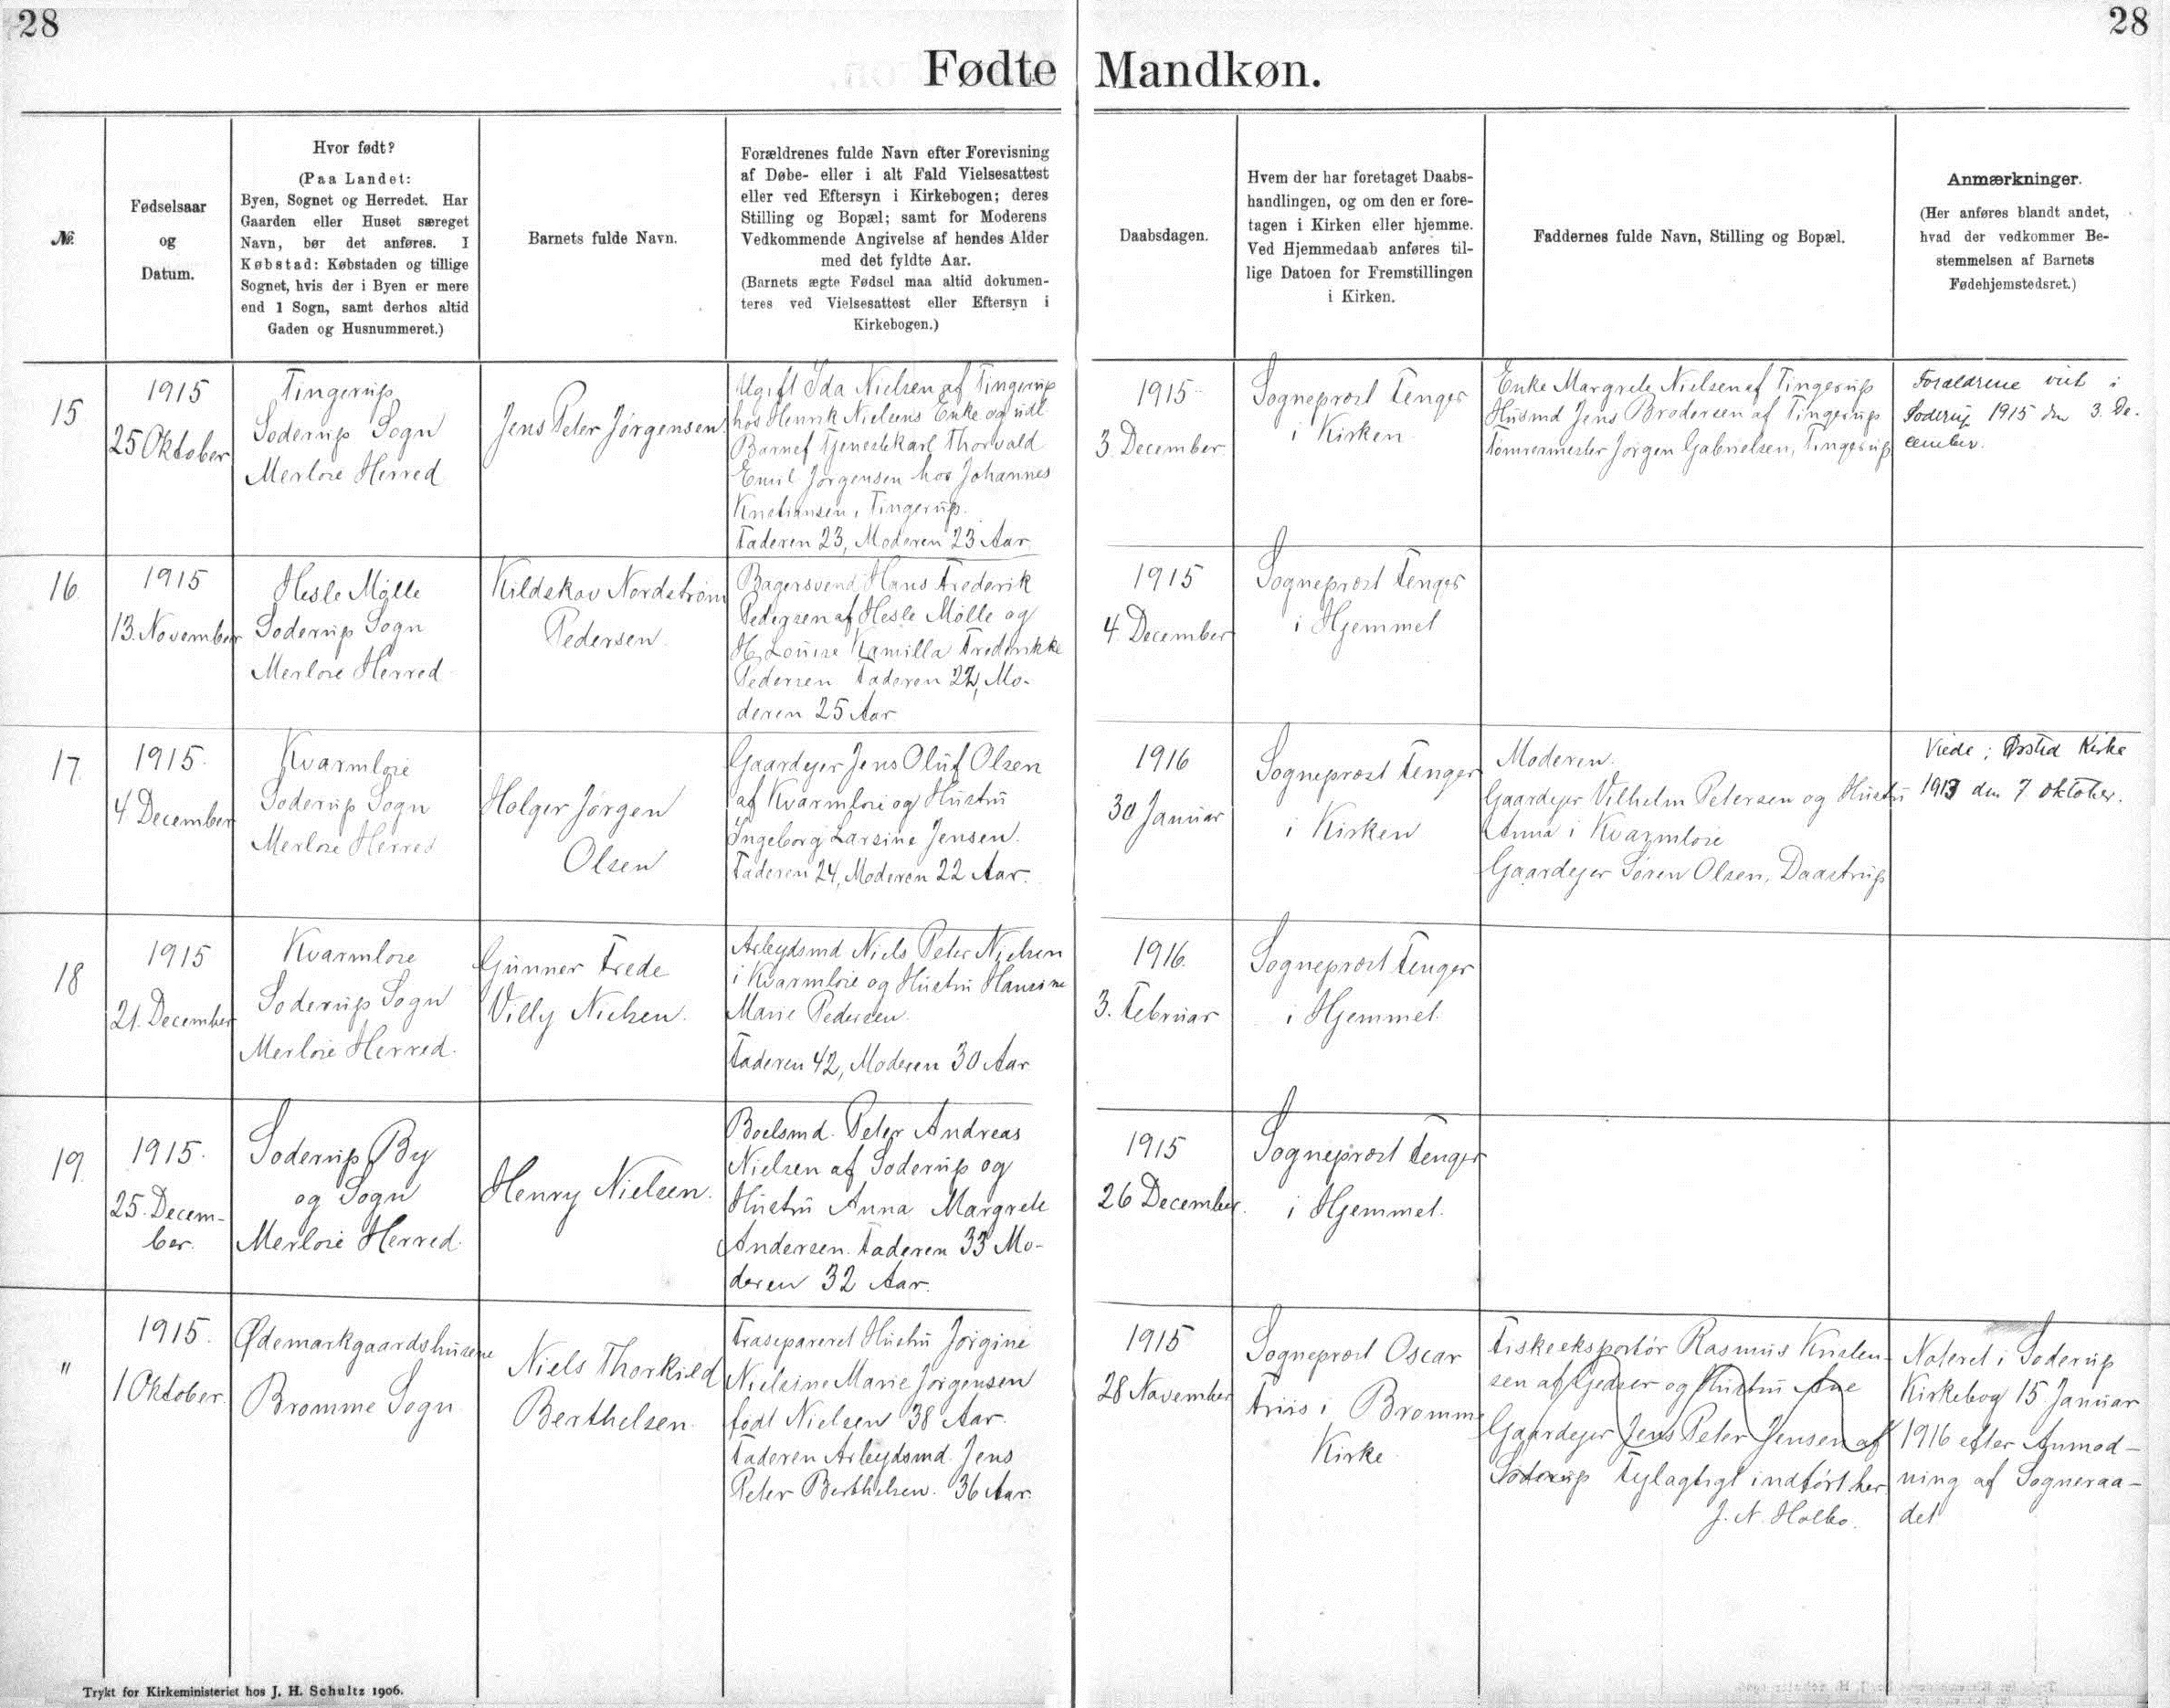 28
28
Fødte Mandkøn.
№.
Fødselsaar
og
Datum.
Hvor født?
(Paa Landet:
Byen, Sognet og Herredet. Har
Gaarden eller Huset særeget
Navn, bør det anføres. I
Købstad: Købstaden og tillige
Sognet, hvis der i Byen er mere
end 1 Sogn, samt derhos altid
Gaden og Husnummeret.)
Barnets fulde Navn.
Forældrenes fulde Navn efter Forevisning
af Døbe- eller i alt Fald Vielsesattest
eller ved Eftersyn i Kirkebogen; deres
Stilling og Bopæl; samt for Moderens
Vedkommende Angivelse af hendes Alder
med det fyldte Aar.
(Barnets ægte Fødsel maa altid dokumen-
teres ved Vielsesattest eller Eftersyn i
Kirkebogen.)
Daabsdagen.
Hvem der har foretaget Daabs-
handlingen, og om den er fore-
tagen i Kirken eller hjemme.
Ved Hjemmedaab anføres til-
lige Datoen for Fremstillingen
i Kirken.
Faddernes fulde Navn, Stilling og Bopæl.
Anmærkninger.
(Her anføres blandt andet,
hvad der vedkommer Be-
stemmelsen af Barnets
Fødehjemstedsret.)
15
1915
25 Oktober
Tingerup
Soderup Sogn
Merløse Herred
Jens Peter Jørgensen
Ugift Ida Nielsen af Tingerup
hos Henrik Nielsens Enke og udl
Barnef Tjenestekarl Thorvald
Emil Jørgensen hos Johannes
Kristiansen, Tingerup.
Faderen 23, Moderen 23 Aar
1915
3 December
Sogneprost Fenger
i Kirken
Enke Margrete Nielsen af Tingerup
Husmd Jens Brodersen af Tingerup
Tømrermester Jørgen Gabrielsen, Tingerup
Forældrene viet i
Soderup 1915 den 3. De-
cember.
16
1915
13. November
Hesle Mølle
Soderup Sogn
Merløse Herred
Kildskov Nordstrøm
Pedersen
Bagersvend Hans Frederik
Pedersen af Hesle Mølle og
H. Louise Kamilla Frederikke
Pedersen Faderen 22, Mo-
deren 25 Aar
1915
4 December
Sogneprost Fenger
i Hjemmet
17
1915
4 December
Kvarmløse
Soderup Sogn
Merløse Herred
Holger Jørgen
Olsen
Gaardejer Jens Oluf Olsen
af Kvarmløse og Hustru
Ingeborg Larsine Jensen.
Faderen 24, Moderen 22 Aar.
1916
30 Januar
Sogneprost Fenger
i Kirken
Moderen.
Gaardejer Vilhelm Petersen og Hustru
Anna i Kvarmløse
Gaardejer Søren Olsen, Daastrup
Viede i Ørsted Kirke
1913 den 7 Oktober.
18
1915
21. December
Kvarmløse
Soderup Sogn
Merløse Herred.
Gunner Frede
Villy Nielsen.
Arbejdsmd Niels Peter Nielsen
i Kvarmløse og Hustru Hansine
Marie Pedersen.
Faderen 42, Moderen 30 Aar
1916.
3. Februar
Sogneprost Fenger
i Hjemmet.
19
1915.
25. Decem-
ber.
Soderup By
og Sogn
Merløse Herred.
Henry Nielsen.
Boelsmd. Peter Andreas
Nielsen af Soderup og
Hustru Anna Margrete
Andersen. Faderen 33 Mo-
deren 32 Aar.
1915
26 December
Sogneprost Fenger
i Hjemmet.
"
1915.
1 Oktober.
Ødemarkgaardshusene
Bromme Sogn
Niels Thorkild
Berthelsen.
Frasepareret Hustru Jørgine
Nielsine Marie Jørgensen
født Nielsen 38 Aar.
Faderen Arbejdsmd. Jens
Peter Berthelsen. 36 Aar.
1915
28 November
Sogneprost Oscar
Friis i Bromme
Kirke
Fiskeeksportør Rasmus Kristen-
sen af Gedser og Hustru Ane
Gaardejer Jens Peter Jensen af
Soderup Fejlagtigt indført her
J. N. Holbo.
Noteret i Soderup
Kirkebog 15 Januar
1916 efter Anmod-
ning af Sogneraa-
det
Trykt for Kirkeministeriet hos J. H. Schultz 1906.